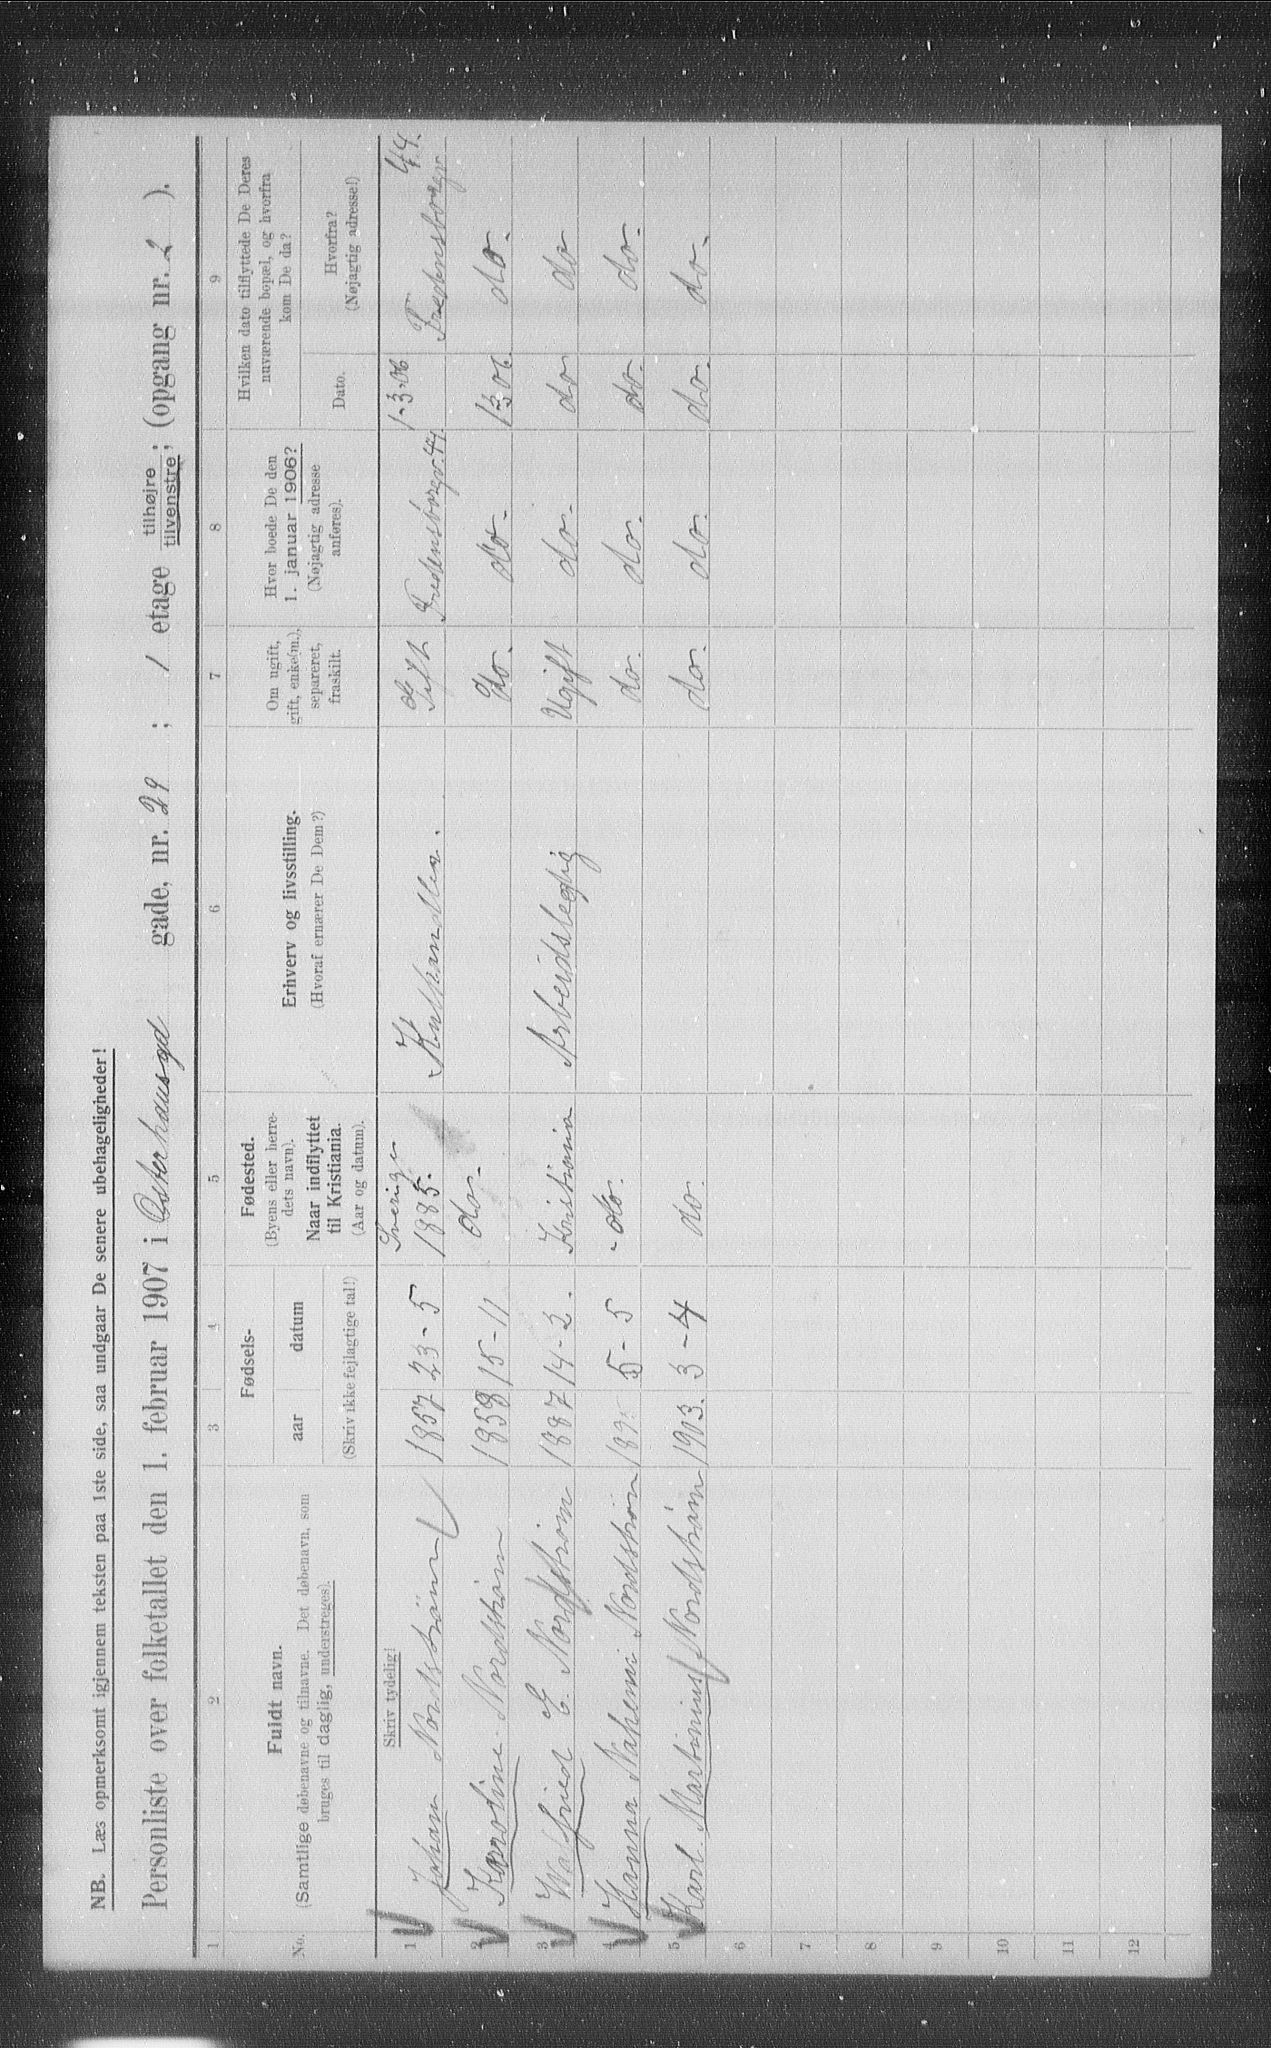 NB. Læs opmerksomt igjennem teksten paa 1ste side, saa undgaar De senere ubehageligheder!
Personliste over folketallet den 1. februar 1907 i Osterhausgd gade, nr. 29 ; 1 etage tilhøjre tilvenstre ; (opgang nr. 2 ).
1 2 3 4 5 6 7 8 9
No.
Fuldt navn.
(Samtlige døbenavne og tilnavne. Det døbenavn, som
bruges til daglig, understreges).
Fødsels-
aar datum
(Skriv ikke fejlagtige tal!)
Fødested.
(Byens eller herre-
dets navn).
Naar indflyttet
til Kristiania.
(Aar og datum).
Erhverv og livsstilling.
(Hvoraf ernærer De Dem?)
Om ugift,
gift, enke(m.),
separeret,
fraskilt.
Hvor boede De den
1. januar 1906?
(Nøjagtig adresse
anføres).
Hvilken dato tilflyttede De Deres
nuværende bopæl, og hvorfra
kom De da?
Dato.
Hvorfra?
(Nøjagtig adresse!)
Skriv tydelig!
1 Johan Nordström 1857 23-5 Sverige 1885. Kulhandler. Gift Fredensborgv. 44. 1-3-06 Fredensborgv 44.
2 Karoline Nordström 1858 15-11 do. do. do. 1 3 06. do.
3 Walfried E. Nordström 1887 14-2. Kristiania Arbeidsledig Ugift do. do do
4 Hanna Nordström 5-5 - do. do. do. do. do.
5 Karl Martinius Nordstrøm 1903. 3-4 do. do. do. do. do.
6
7
8
9
10
11
12